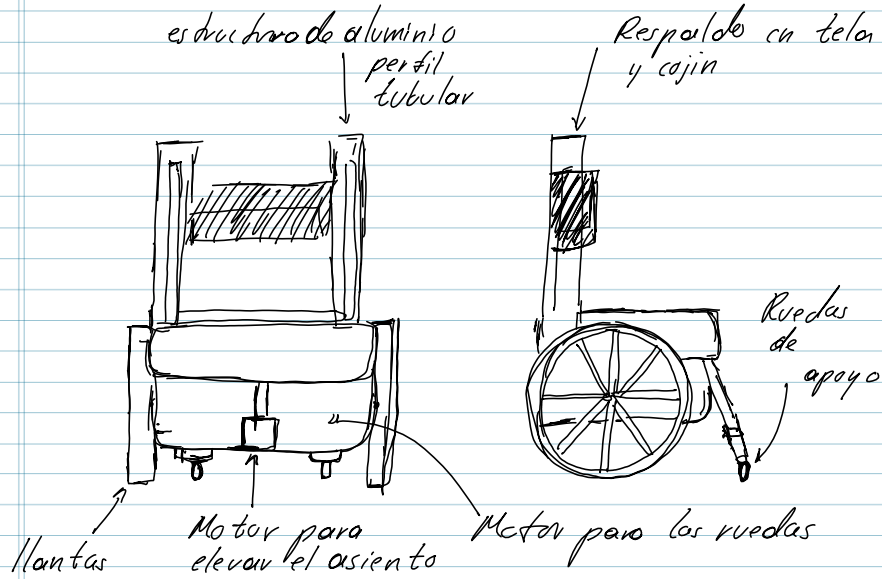 estructura de aluminio
perfil
tubular
Respaldo en tela
y cojin
Ruedas
de
apoyo
llantas
Motor para
elevar el asiento
Motor para las ruedas